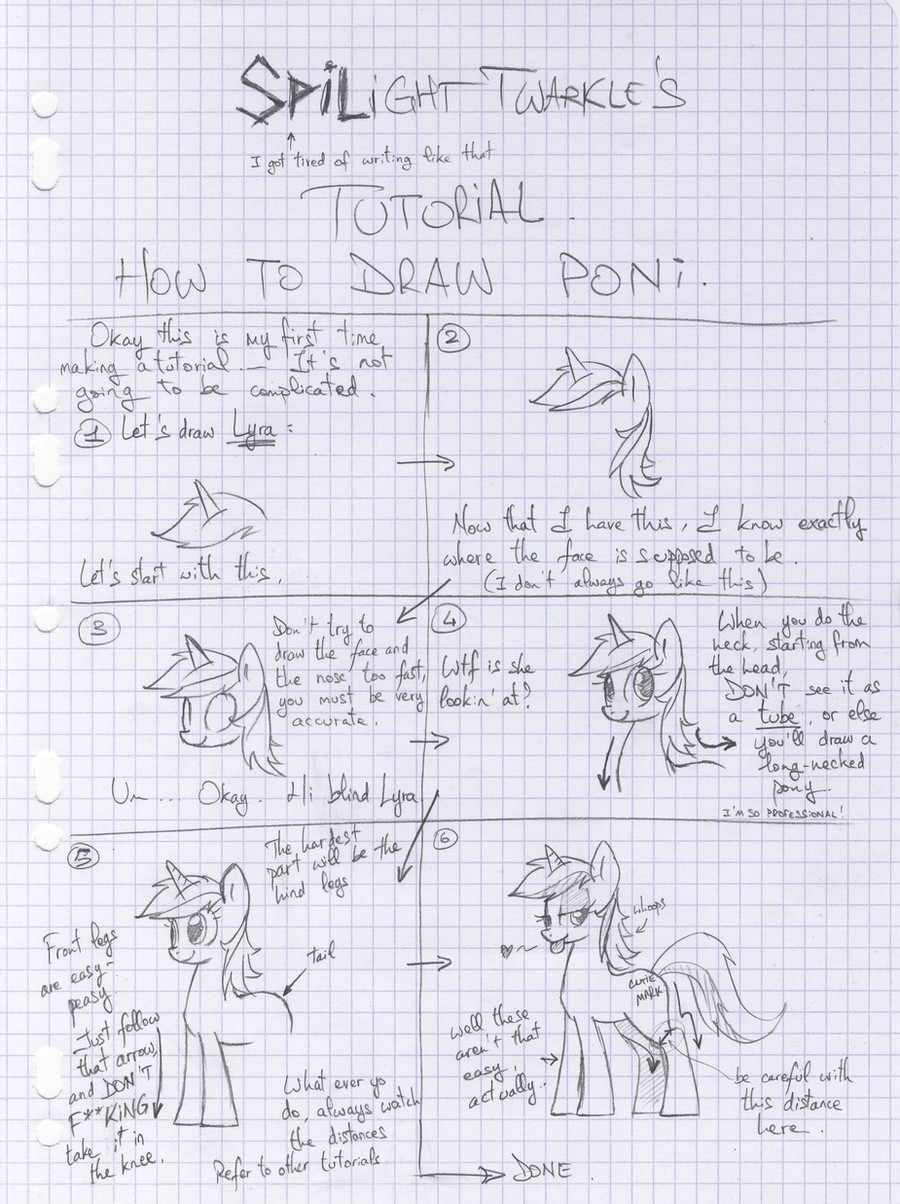 SPiLiGHT TWARKLE'S
I got tired of writing like that
TUTORiAL.
HOW TO DRAW PONi.
Okay this is my first time
making a tutorial.— It's not
going to be complicated.
1 Let's draw Lyra :
Let's start with this.
2
Now that I have this, I know exactly
where the face is supposed to be.
(I don't always go like this)
3
Don't try to
draw the face and
the nose too fast,
you must be very
accurate.
Um.... Okay. Hi blind Lyra
4
Wtf is she
lookin' at?
When you do the
neck, starting from
the head,
DON'T see it as
a tube, or else
you'll draw a
long-necked
pony.
I'M SO PROFESSIONAL!
5
The hardest
part will be the
hind legs
Front legs
are easy-
peasy.
Just follow
that arrow,
and DON'T
F**KiNG
take it in
the knee.
tail
What ever yo
do, always watch
the distances
Refer to other tutorials
6
whoops
CUTIE
MARK
well these
aren't that
easy,
actually..
be careful with
this distance
here.
DONE